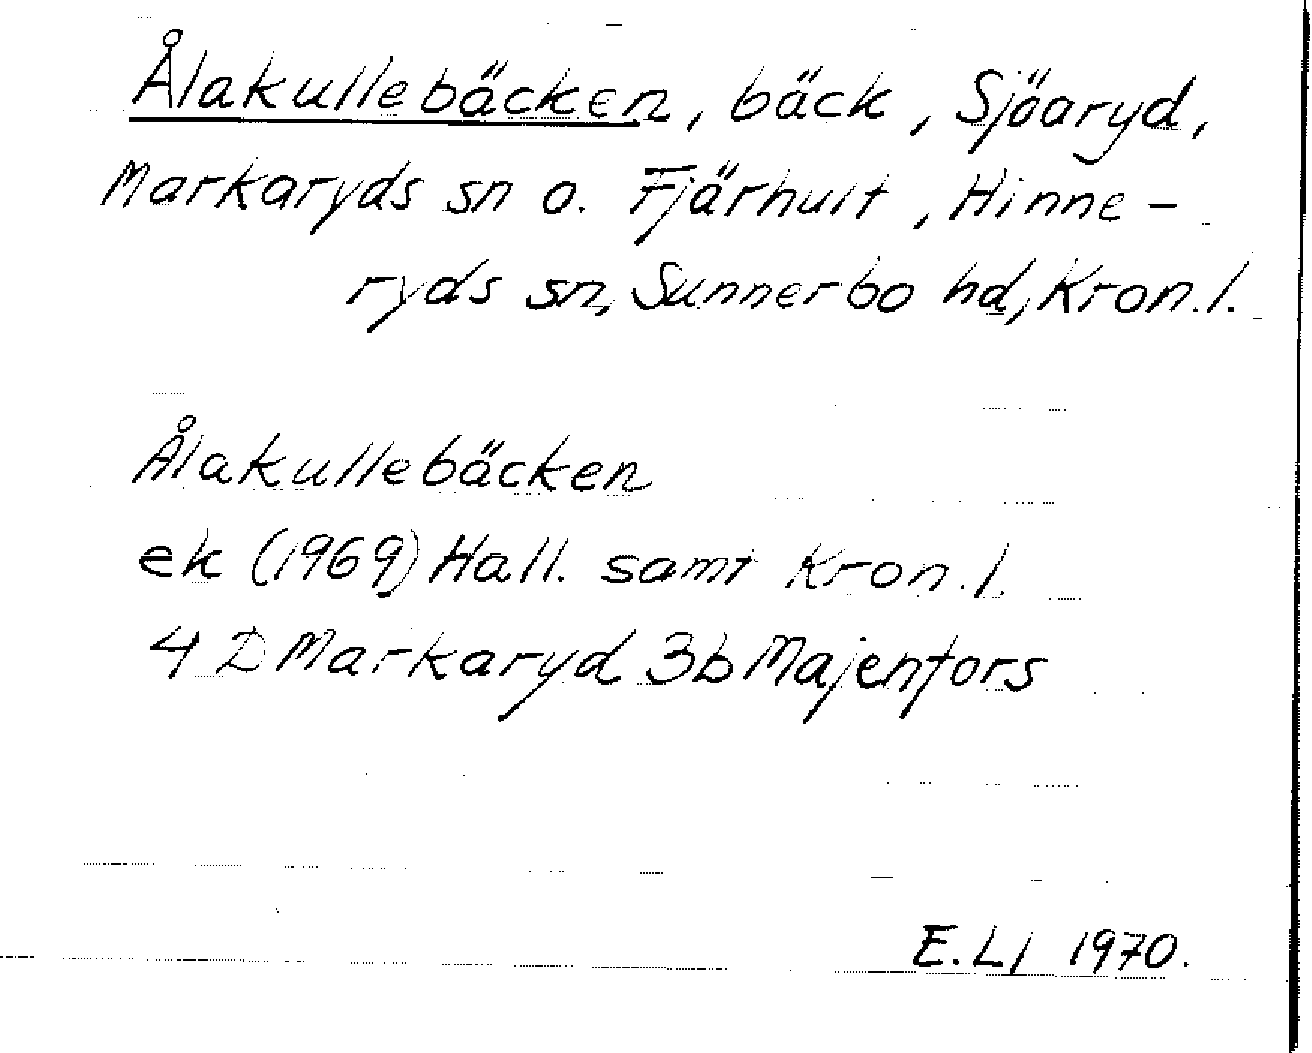 Ålakullebäcken, bäck, Sjöaryd,
Markaryds sn o. Fjärhult, Hinne-
ryds sn, Sunnerbo hd, Kron.l.
Ålakullebäcken
ek (1969) Hall. samt Kron.l.
4 D Markaryd 3b Majenfors
E.Lj 1970.